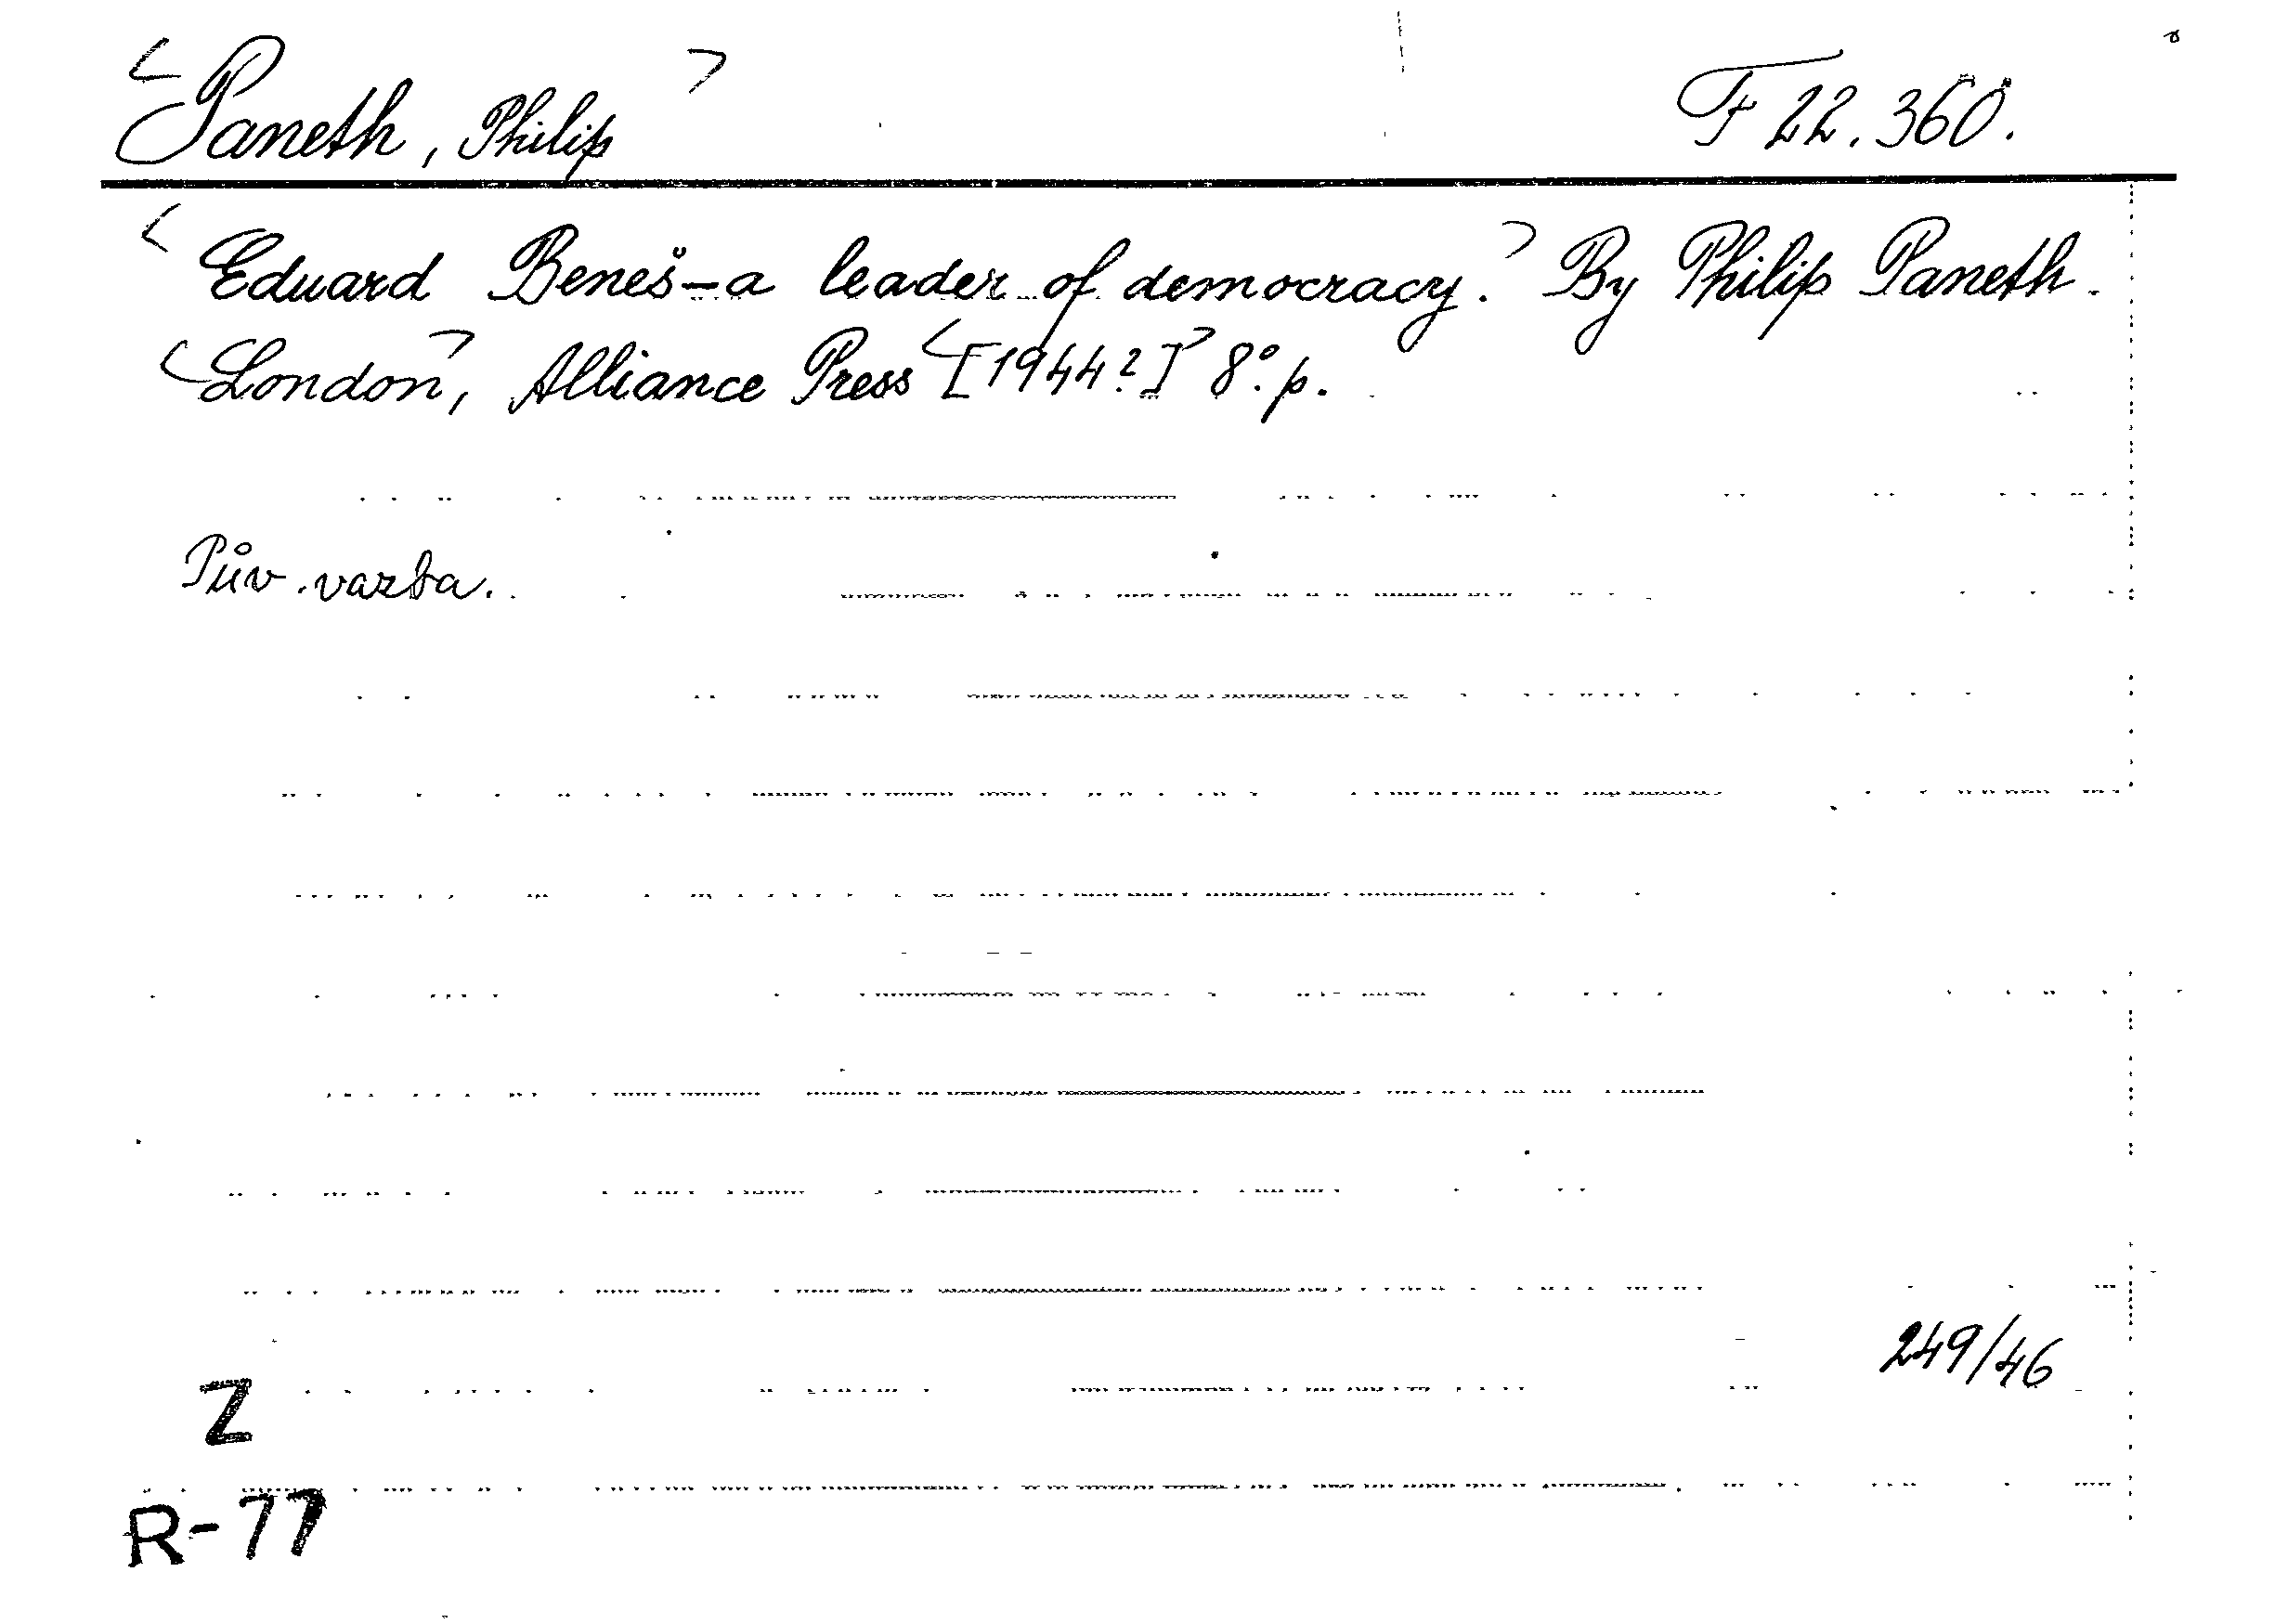 <Paneth, Philip> F 22.360.
<Eduard Beneš – a leader of democracy.> By Philip Paneth.
<London>, Alliance Press <[1944?]> 8°. p.
Pův. vazba.
249/46
Z
R-77